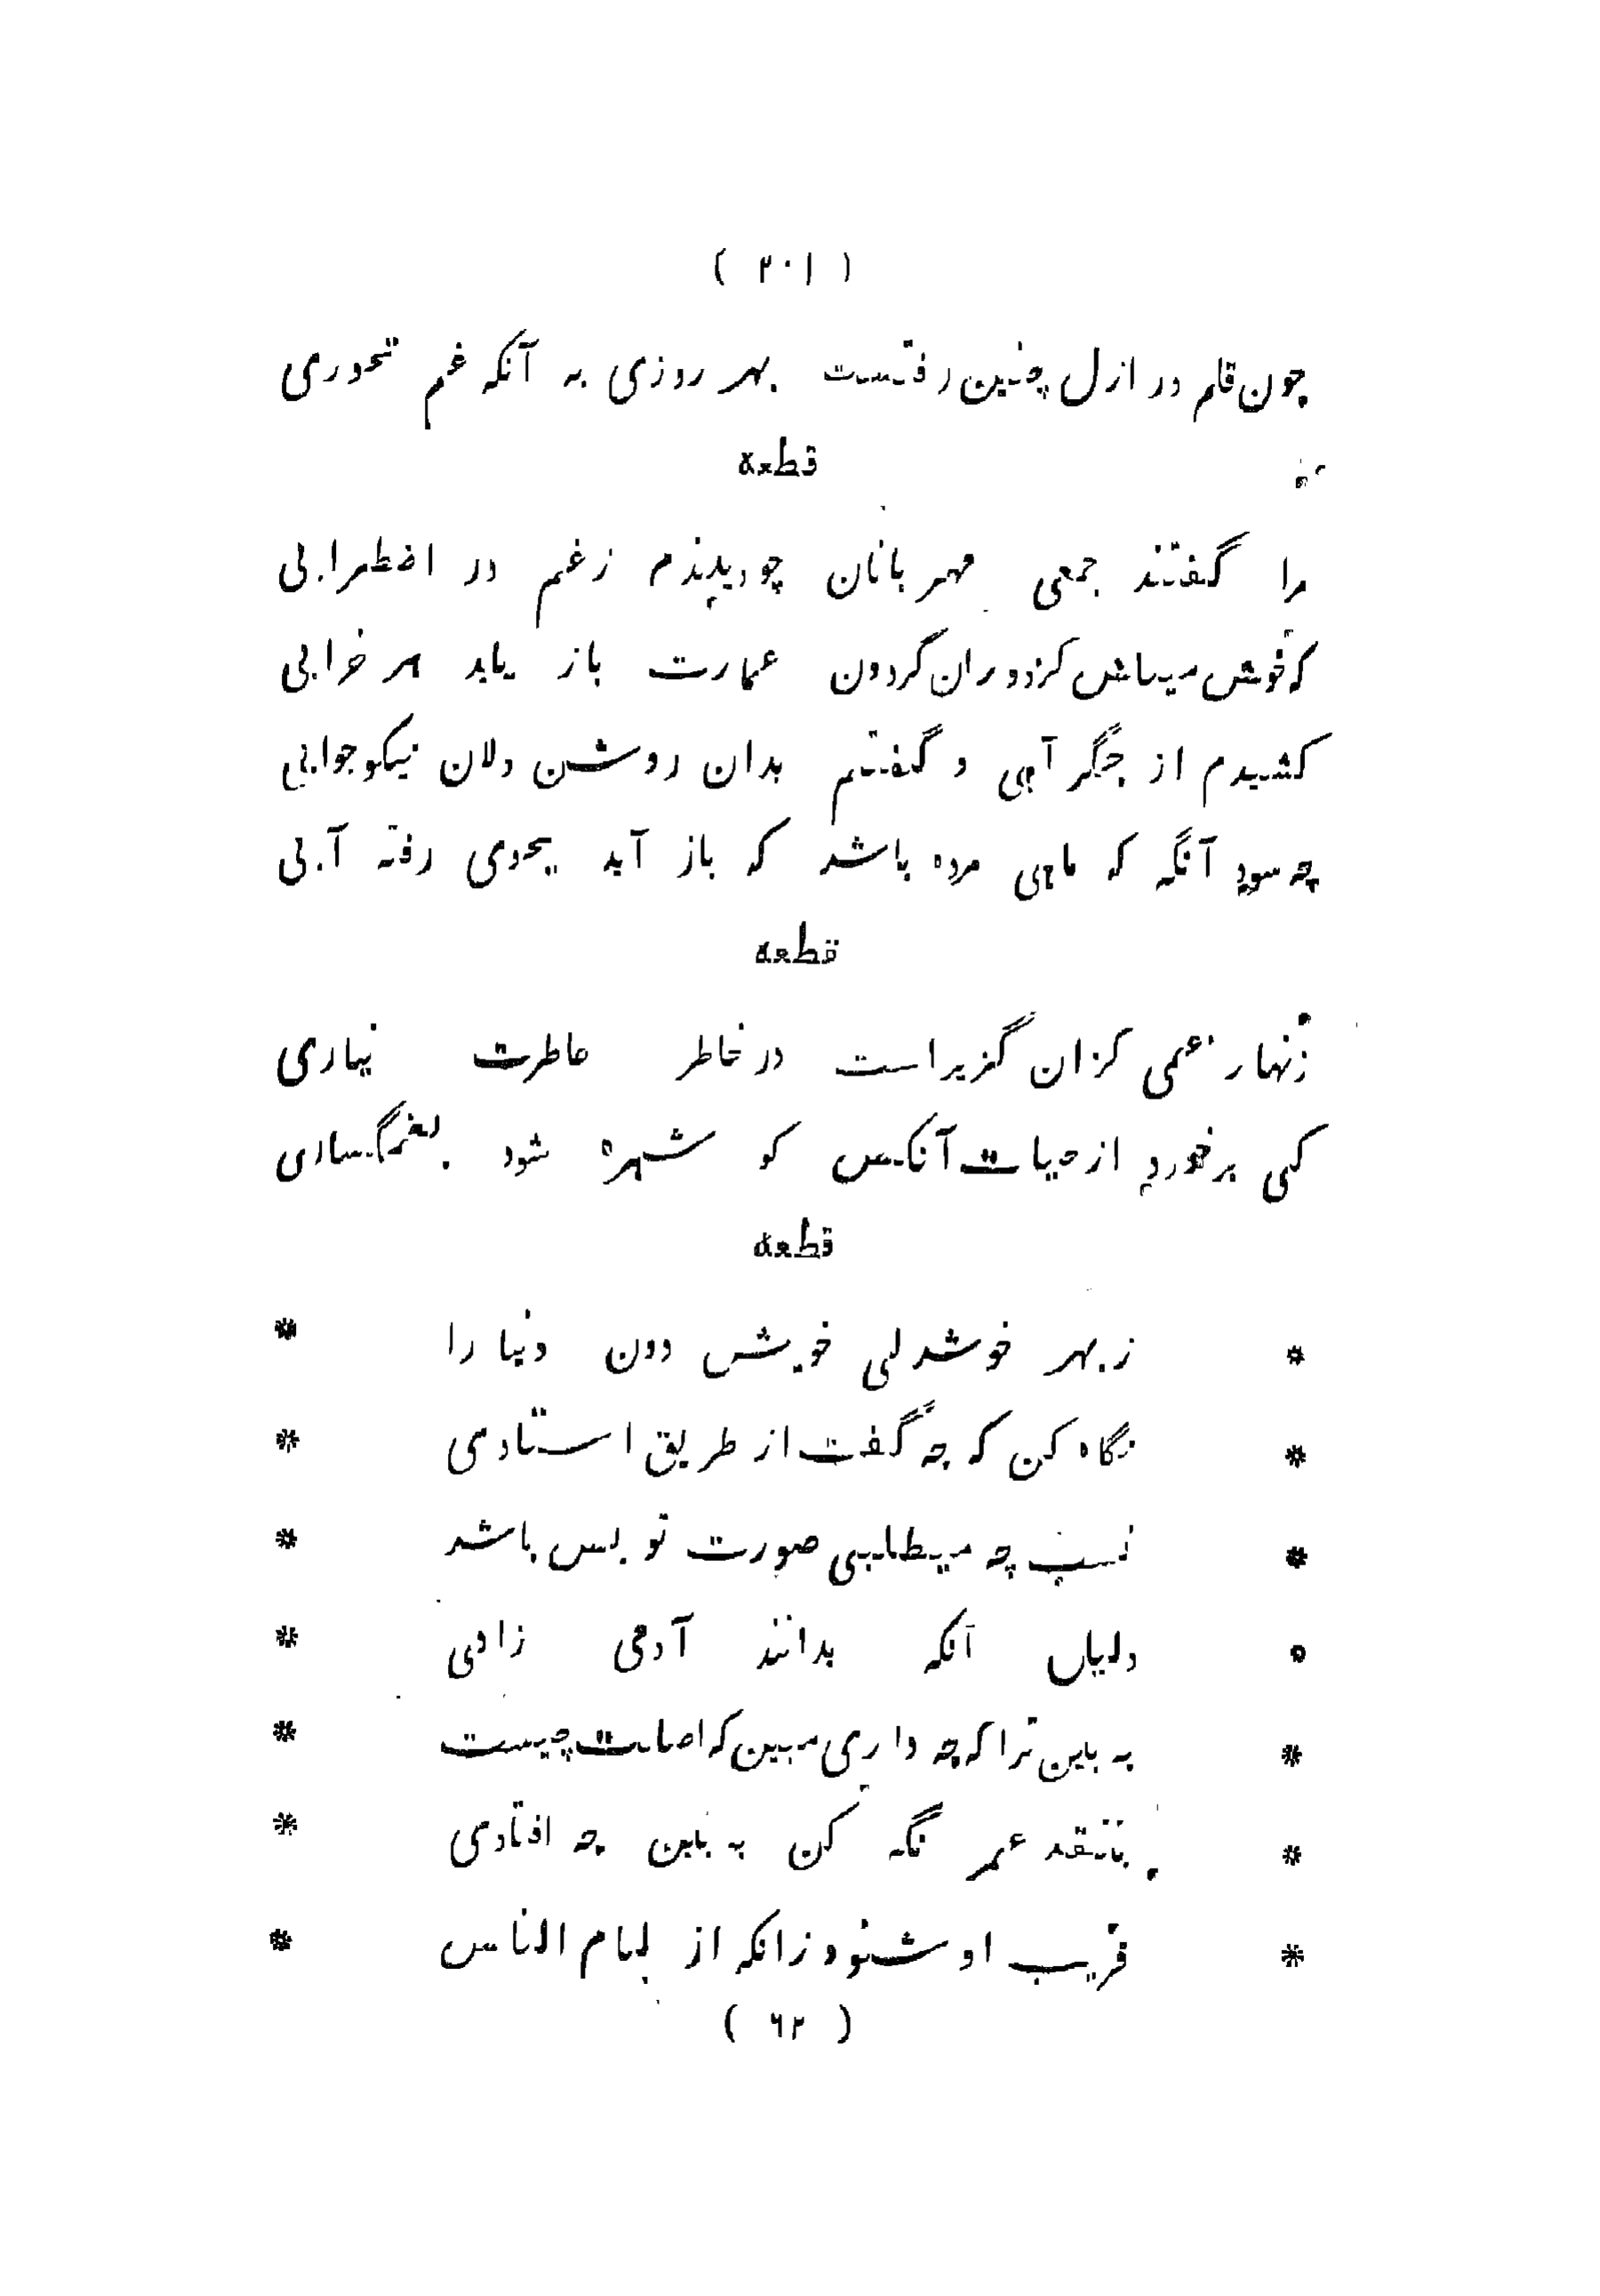 ( ۲۰۱ )
چون قلم در ازل چنین رفتست بهر روزی به آنکه غم نخوری
قطعه
مرا گفتند جمعی مهربانان چو دیدندم زغم در اضطرابی
که خوش میباش کزدوران گردون عمارت باز یابد هر خرابی
کشیدم از جگر آهی و گفتم بدان روشن دلان نیکو جوابی
چه سود آنگه که ماهی مرده باشد که باز آید بجوی رفته آبی
قطعه
زنهار غمی کزان گزیراست در خاطر عاطرت نیاری
کی برخورد از حیات آنکس کو شهره شود بغمگساری
قطعه
* زبهر خوشدلی خویش دون دنیا را *
* نگاه کن که چه گفت از طریق استادی *
* نسب چه میطلبی صورت تو بس باشد *
* دلیل آنکه بدانند آدمی زادی *
* به بین ترا که چه داری مبین که اصلت چیست *
* بنقد عمر نگه کن به بین چه افتادی *
* فریب او شنود زانکه از لئام الناس *
( ۶۲ )